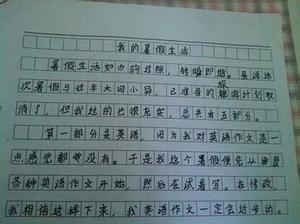 我的暑假生活
暑假生活如白驹过隙，转瞬即逝。虽然这
次暑假与往年大同小异，已准备的旅游计划取
消了，但我过的也很充实，总共有五部分。
第一部分是英语，因为我对英语作文是一
点感觉都没有。于是我这个暑假便先从
各种英语作文开始，然后在试着写。在修改
我相信这样下来，我英语作文一定会进步的。